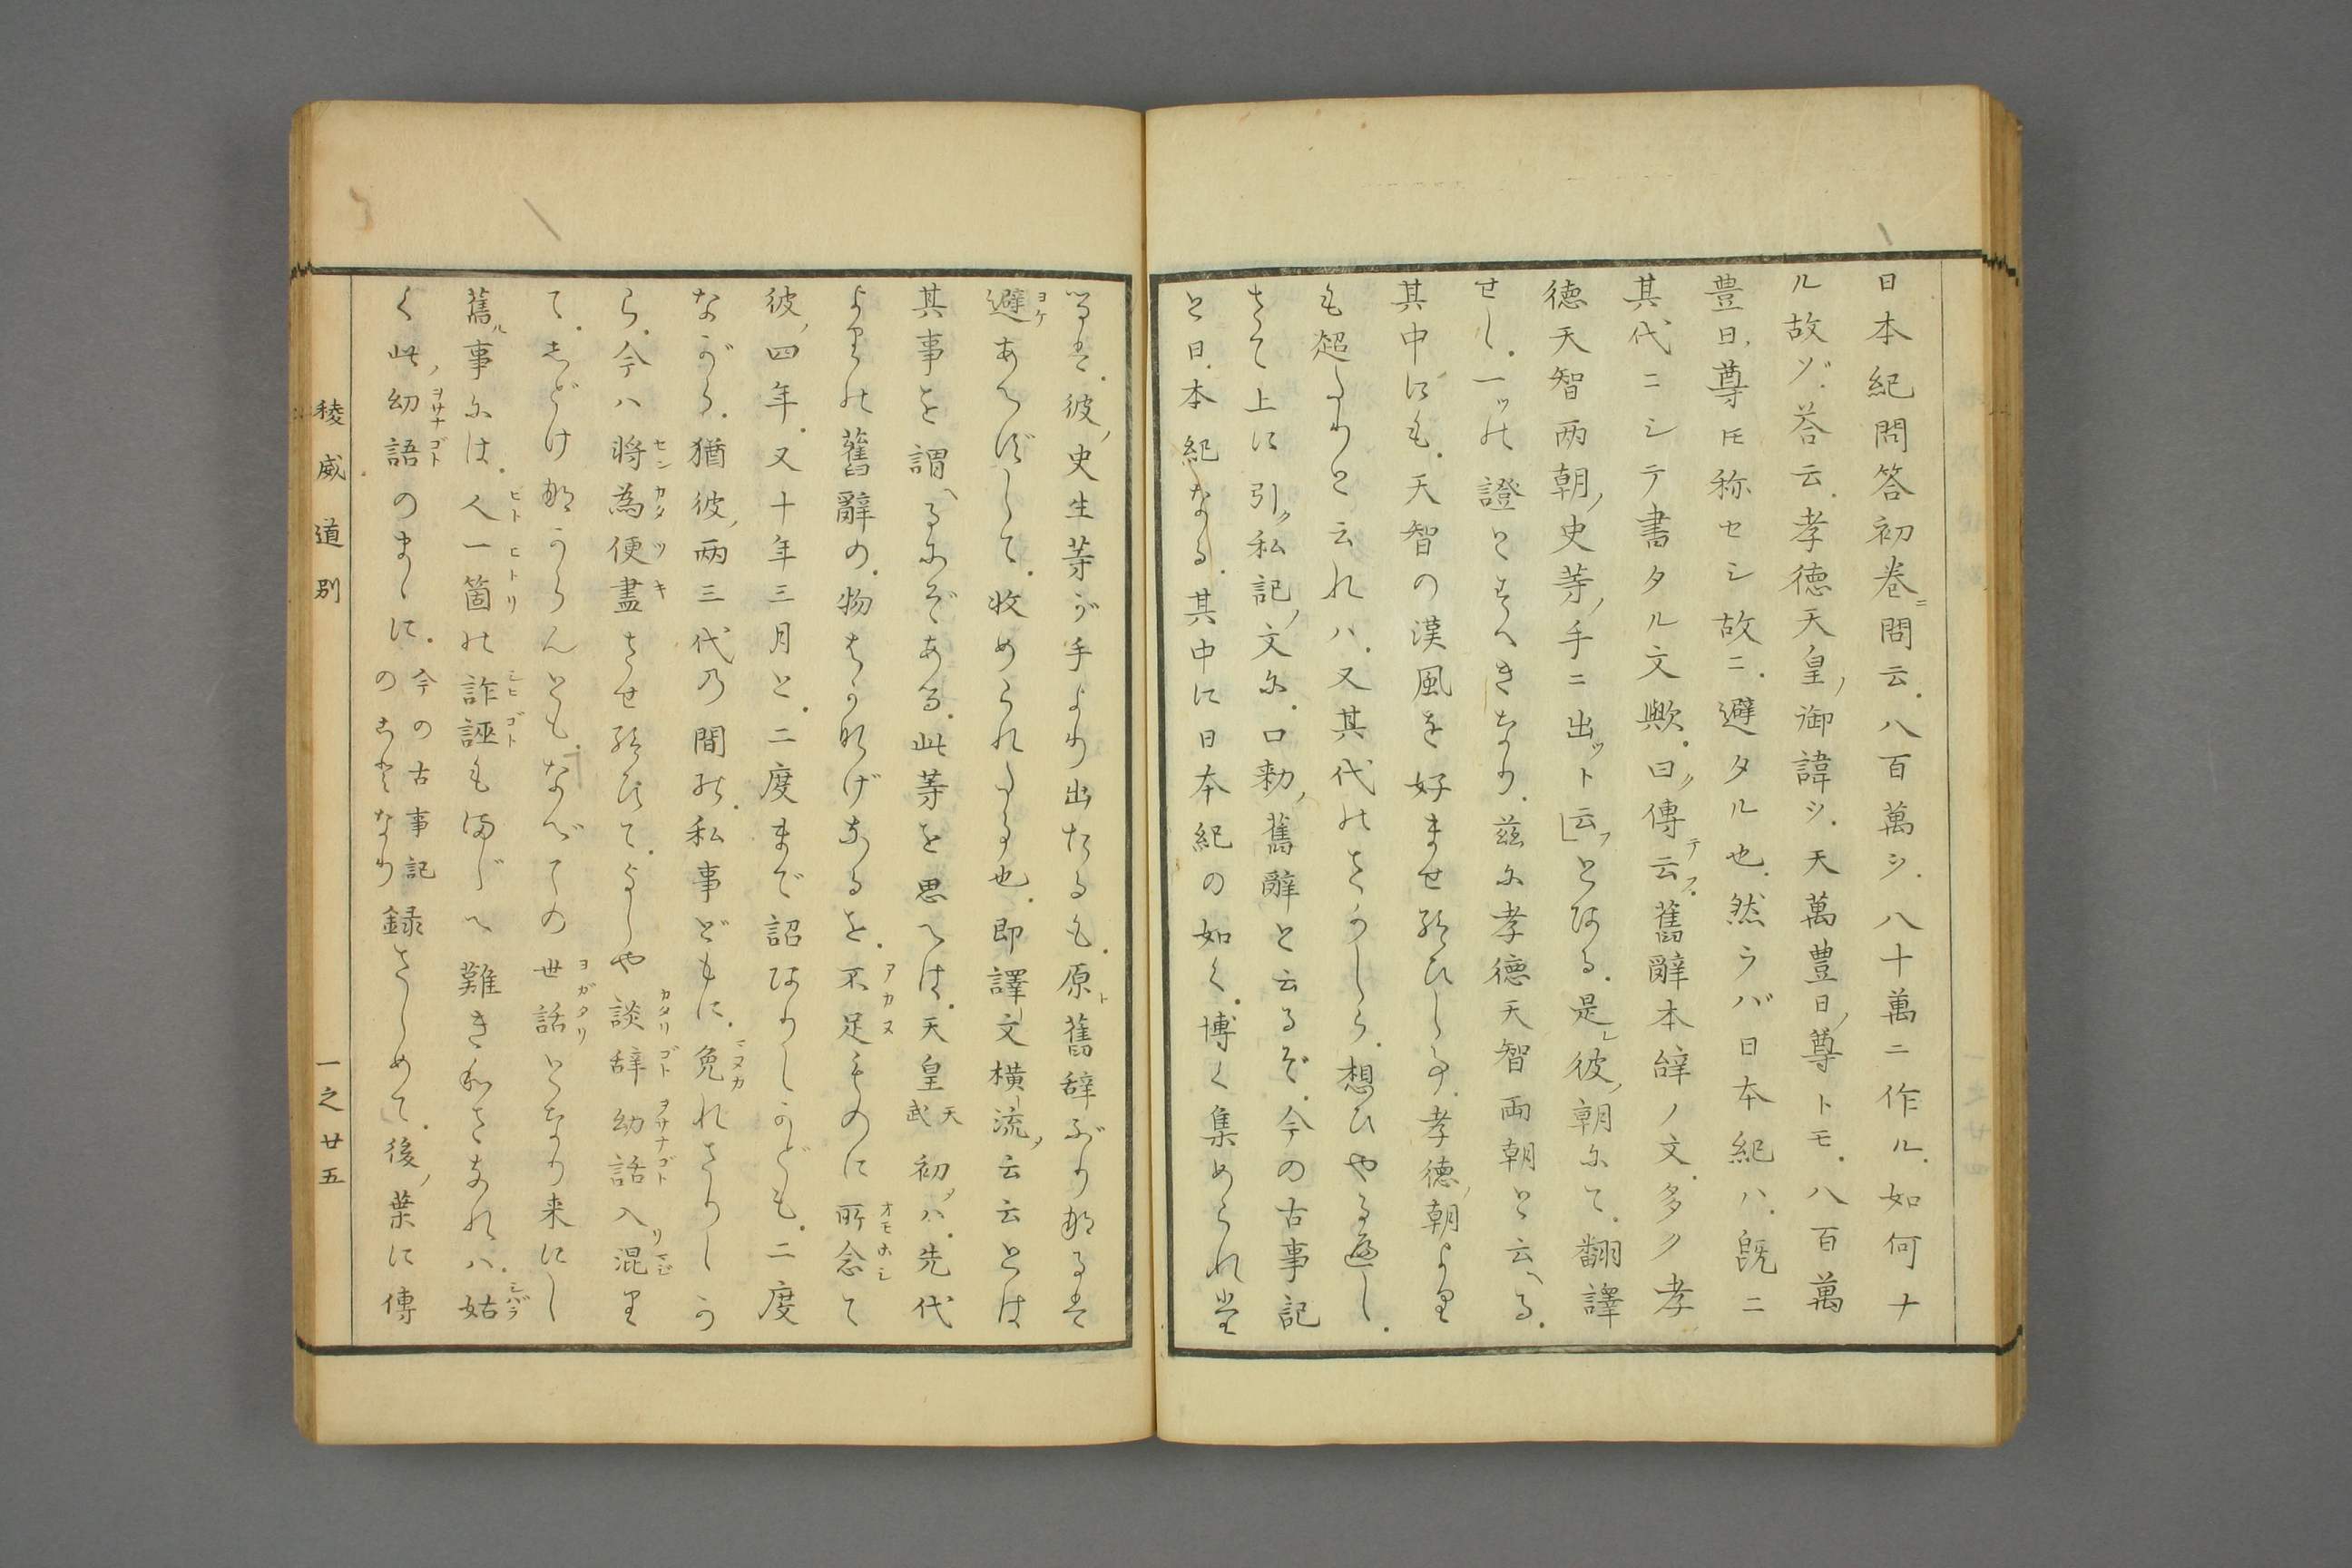 日本紀問答初卷ニ問云八百萬ヲ八十萬ニ作ル如何ナ
ル故ゾ答云孝徳天皇ノ御諱ヲ天萬豊日ノ尊トモ八百萬
豊日ノ尊圧称セシ故ニ避タル也然ラバ日本紀ハ既ニ
其代ニシテ書タル文歟曰ク傳テ云フ舊辭本辞ノ文多ク孝
徳天智両朝ノ史等ノ手ニ出ツト云フとある是レ彼ノ朝にて翻譯
せし一ツの證とすへきなり茲に孝徳天智両朝と云へる
其中にも天智の漢風を好ませ給ひしは孝徳ノ朝より
も超たりと云れハ又其代のさかしら想ひやる遍し
さて上に引ク私記ノ文に口勅ノ舊辭と云るぞ今の古事記
と日本紀なる其中に日本紀の如く博く集められ
彼ノ史生等が手より出たるも原ト舊辞ぶりなるは
避あへずして收められたる也即譯文横流ノ云云とは
其事を謂へるにぞある此等を思へは天皇天武初メハ先代
よりの舊辭の物はかなげなるを不足ものに所念て
彼ノ四年又十年三月と二度まで詔ありしかども二度
ながら猶彼ノ両三代乃間の私事どもに免れさりしか
ら今ハ将為便盡させ給ひてよしや談辞幼話入リ混り
てしどけなからんともなべての世話となり来にし
舊ル事には人一箇の詐誣もまじへ難きわさなれハ姑
く此ノ幼語のまゝに今の古事記のことなり録さしめて後ノ葉に傳
稜威道別
一之廿五